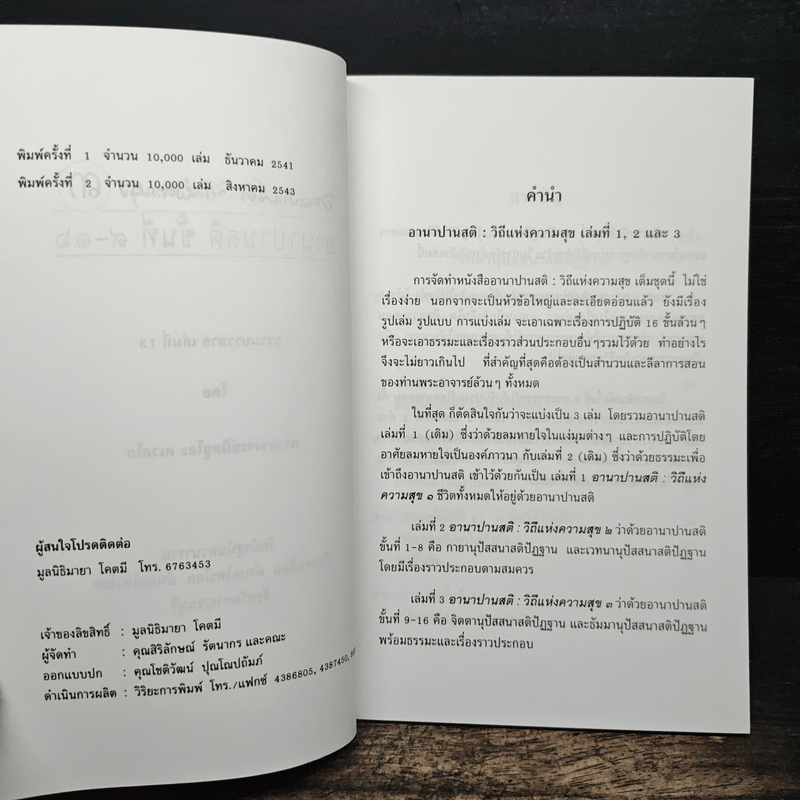 พิมพ์ครั้งที่ 1 จำนวน 10,000 เล่ม ธันวาคม 2541
พิมพ์ครั้งที่ 2 จำนวน 10,000 เล่ม สิงหาคม 2543
ผู้สนใจโปรดติดต่อ
มูลนิธิมายา โคตมี โทร. 6763453
เจ้าของลิขสิทธิ์ : มูลนิธิมายา โคตมี
ผู้จัดทำ : คุณสิริลักษณ์ รัตนากร และคณะ
ออกแบบปก : คุณโชติวัฒน์ ปุณโณปถัมภ์
ดำเนินการผลิต : วิริยะการพิมพ์ โทร./แฟกซ์ 4386805, 4387450,
คำนำ
อานาปานสติ : วิถีแห่งความสุข เล่มที่ 1, 2 และ 3
การจัดทำหนังสืออานาปานสติ : วิถีแห่งความสุข เต็มชุดนี้ ไม่ใช่
เรื่องง่าย นอกจากจะเป็นหัวข้อใหญ่และละเอียดอ่อนแล้ว ยังมีเรื่อง
รูปเล่ม รูปแบบ การแบ่งเล่ม จะเอาเฉพาะเรื่องการปฏิบัติ 16 ขั้นล้วนๆ
หรือจะเอาธรรมะและเรื่องราวส่วนประกอบอื่นๆรวมไว้ด้วย ทำอย่างไร
จึงจะไม่ยาวเกินไป ที่สำคัญที่สุดคือต้องเป็นสำนวนและลีลาการสอน
ของท่านพระอาจารย์ล้วนๆ ทั้งหมด
ในที่สุด ก็ตัดสินใจกันว่าจะแบ่งเป็น 3 เล่ม โดยรวมอานาปานสติ
เล่มที่ 1 (เดิม) ซึ่งว่าด้วยลมหายใจในแง่มุมต่างๆ และการปฏิบัติโดย
อาศัยลมหายใจเป็นองค์ภาวนา กับเล่มที่ 2 (เดิม) ซึ่งว่าด้วยธรรมะเพื่อ
เข้าถึงอานาปานสติ เข้าไว้ด้วยกันเป็น เล่มที่ 1 อานาปานสติ : วิถีแห่ง
ความสุข ๑ ชีวิตทั้งหมดให้อยู่ด้วยอานาปานสติ
เล่มที่ 2 อานาปานสติ : วิถีแห่งความสุข ๒ ว่าด้วยอานาปานสติ
ขั้นที่ 1-8 คือ กายานุปัสสนาสติปัฏฐาน และเวทนานุปัสสนาสติปัฏฐาน
โดยมีเรื่องราวประกอบตามสมควร
เล่มที่ 3 อานาปานสติ : วิถีแห่งความสุข ๓ ว่าด้วยอานาปานสติ
ขั้นที่ 9-16 คือ จิตตานุปัสสนาสติปัฏฐาน และธัมมานุปัสสนาสติปัฏฐาน
พร้อมธรรมะและเรื่องราวประกอบ